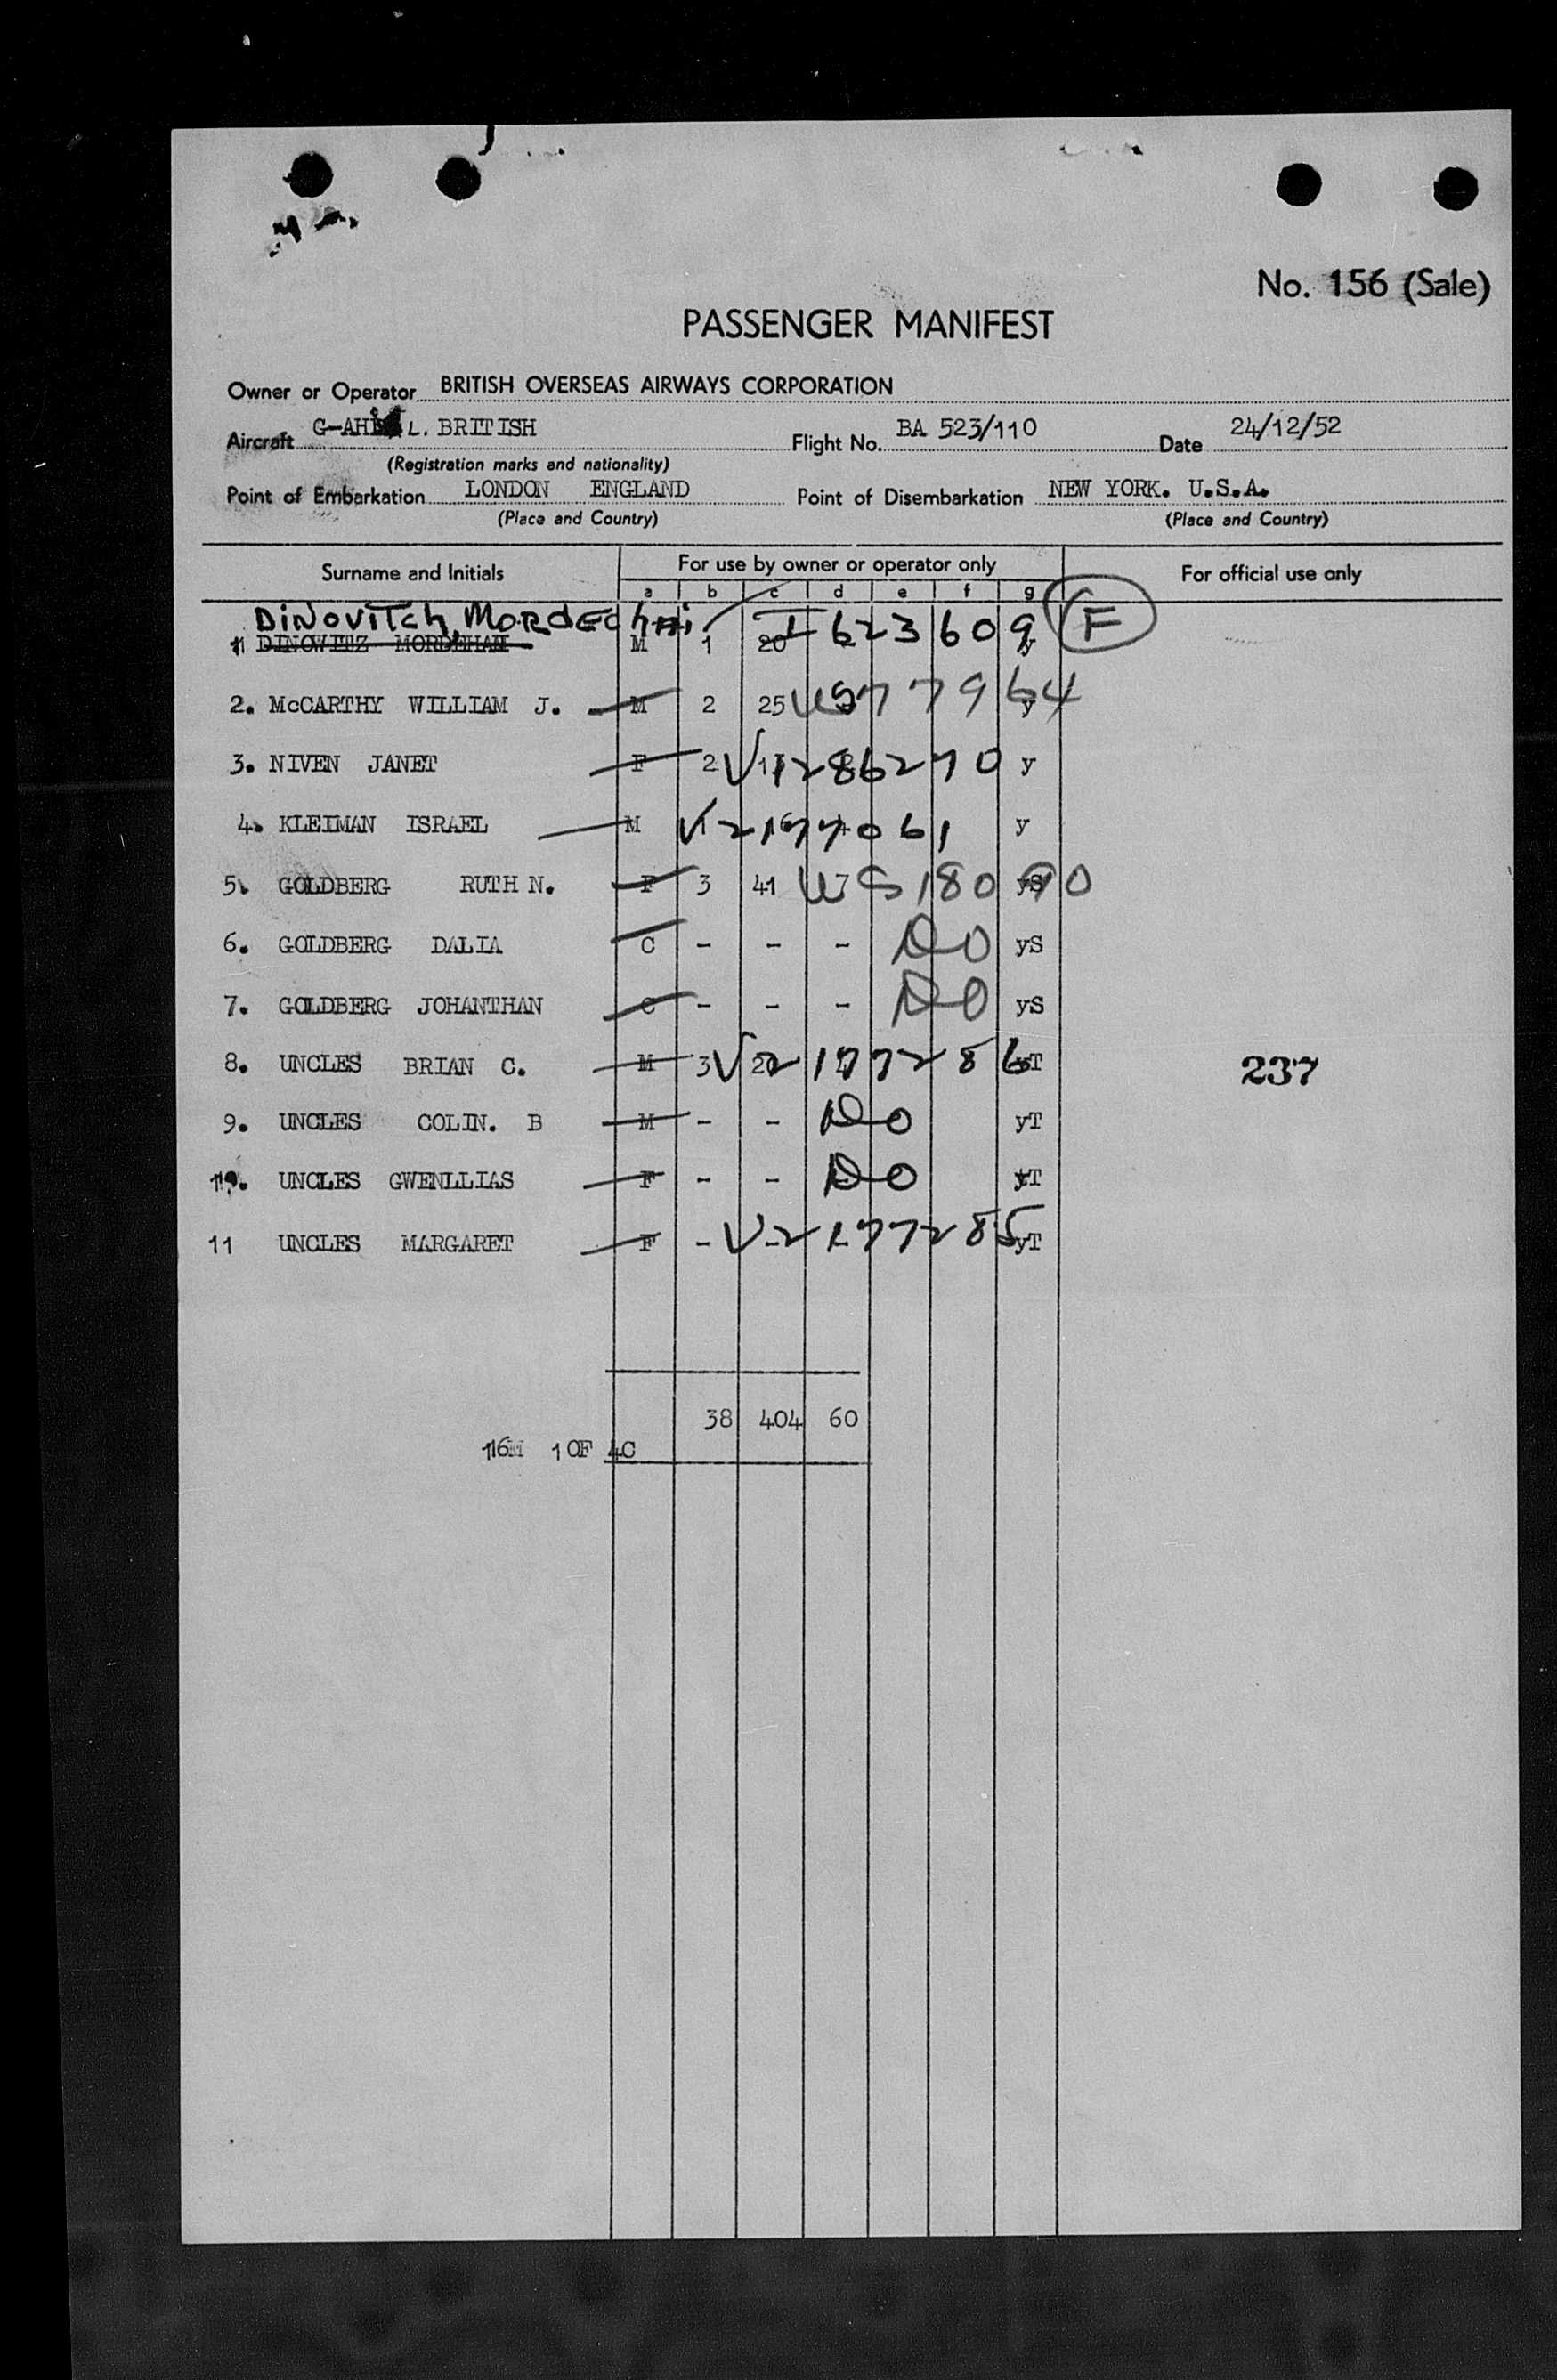 No. 156 (Sale)
PASSENGER MANIFEST
Owner or Operator BRITISH OVERSEAS AIRWAYS CORPORATION
Aircraft L. BRITISH Flight No. BA 523/110 Date 24/12/52
(Registration marks and nationality)
Point of Embarkation LONDON ENGLAND Point of Disembarkation NEW YORK. U.S.A.
(Place and Country) (Place and Country)
Surname and Initials For use by owner or operator only For official use only
a b c d e f g
DiNOVITCh, MORdEChAi I 623609 F
1 DINOWITZ MORDEHAH M 1 20 y
2. McCARTHY WILLIAM J. M 2 25 y
3. NIVEN JANET F 2 V1286270 y
4. KLEIMAN ISRAEL M V2177061 y
5. GOLDBERG RUTH N. F 3 41 7 yS
6. GOLDBERG DALIA C - - - DO yS
7. GOLDBERG JOHANTHAN C - - - DO yS
8. UNCLES BRIAN C. M 3 V2177286 yT 237
9. UNCLES COLIN. B M - - DO yT
10. UNCLES GWENLLIAS F - - DO yT
11 UNCLES MARGARET F - V2177285 yT
38 404 60
16M 10F 4C